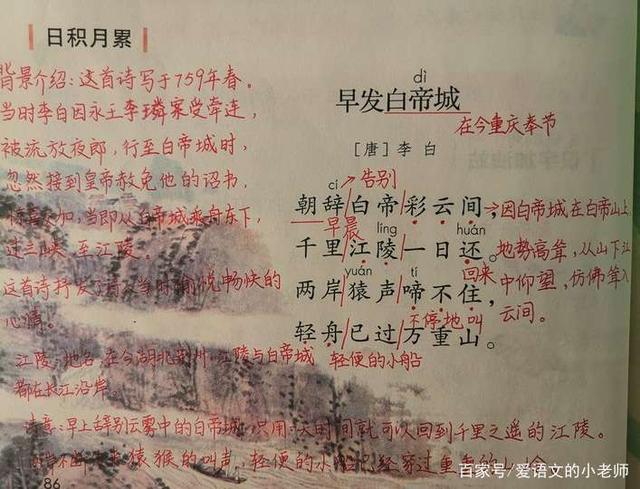 日积月累
背景介绍：这首诗写于759年春。
当时李白因永王李璘案受牵连，
被流放夜郎，行至白帝城时，
忽然接到皇帝赦免他的诏书，
惊喜 加，当即从白帝城乘舟东下，
过三峡 至江陵。
这首诗抒发了诗人当时愉悦畅快的
心情。
江陵：地名，在今湖北荆州。江陵与白帝城
都在长江沿岸。
诗意：早上辞别云雾中的白帝城，只用一天时间就可以回到千里之遥的江陵。
猿猴的叫声，轻便的小船已经穿过重重的山
86
dì
早发白帝城
在今重庆奉节
［唐］李白
cí
告别
朝辞/白帝/彩云间，
因白帝城在白帝山上
早晨
líng
huán
千里/江陵/一日还。
地势高耸，从山下江
yuán
tí
回来
两岸/猿声/啼不住，
中仰望，仿佛耸入
云间。
不停地叫
轻舟/已过/万重山。
轻便的小船
百家号/爱语文的小老师